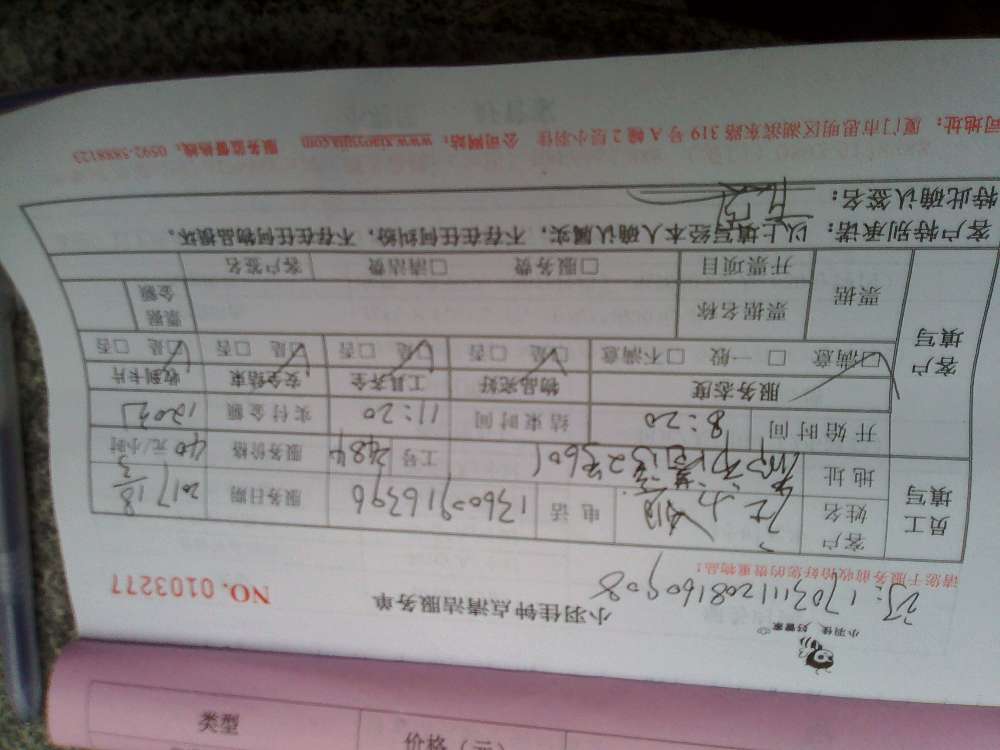 小羽佳 好管家
小羽佳钟点清洁服务单 NO. 0103277
请您于服务前收拾好您的贵重物品!
员工填写 客户姓名 电话 13600916396 服务日期 2017
地址 工号 2484 服务价格 40 元/小时
客户填写 开始时间 8:20 结束时间 11:20 实付金额 120
服务态度 物品完好 工具齐全 安全结束 收到卡片
□满意 □一般 □不满意 □是 □否 □是 □否 □是 □否 □是 □否
票据 票据名称 票据金额
开票项目 □服务费 □清洁费 客户签名
客户特别承诺:以上填写经本人确认属实,不存在任何纠纷,不存在任何物品损坏。
特此确认签名:
司地址:厦门市思明区湖滨东路319号A幢2层小羽佳 公司网站:www.xiaoyujia.com 服务监督热线:0592-5888123
类型 价格(元)